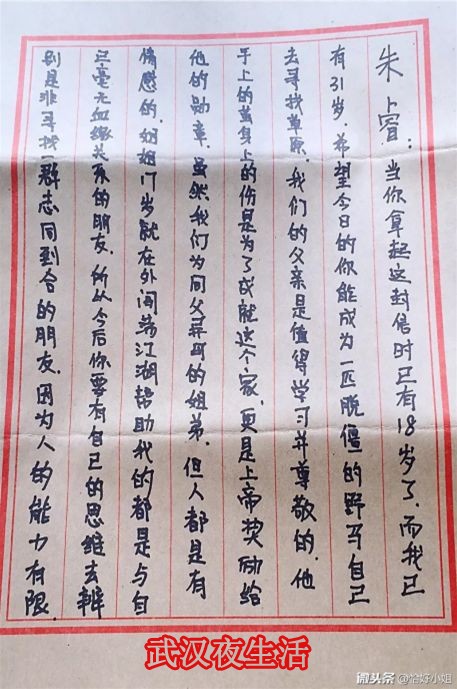 朱睿:当你拿起这封信时已有18岁了,而我已
有31岁.希望今日的你能成为一匹脱缰的野马自己
去寻找草原.我们的父亲是值得学习并尊敬的.他
手上的茧身上的伤是为了成就这个家,更是上帝奖励给
他的勋章.虽然我们为同父异母的姐弟.但人都是有
情感的.姐姐17岁就在外闯荡江湖帮助我的都是与自
己毫无血缘关系的朋友.所以今后你要有自己的思维去辨
别是非寻找一群志同到合的朋友.因为人的能力有限.
武汉夜生活
微头条@恰好小姐